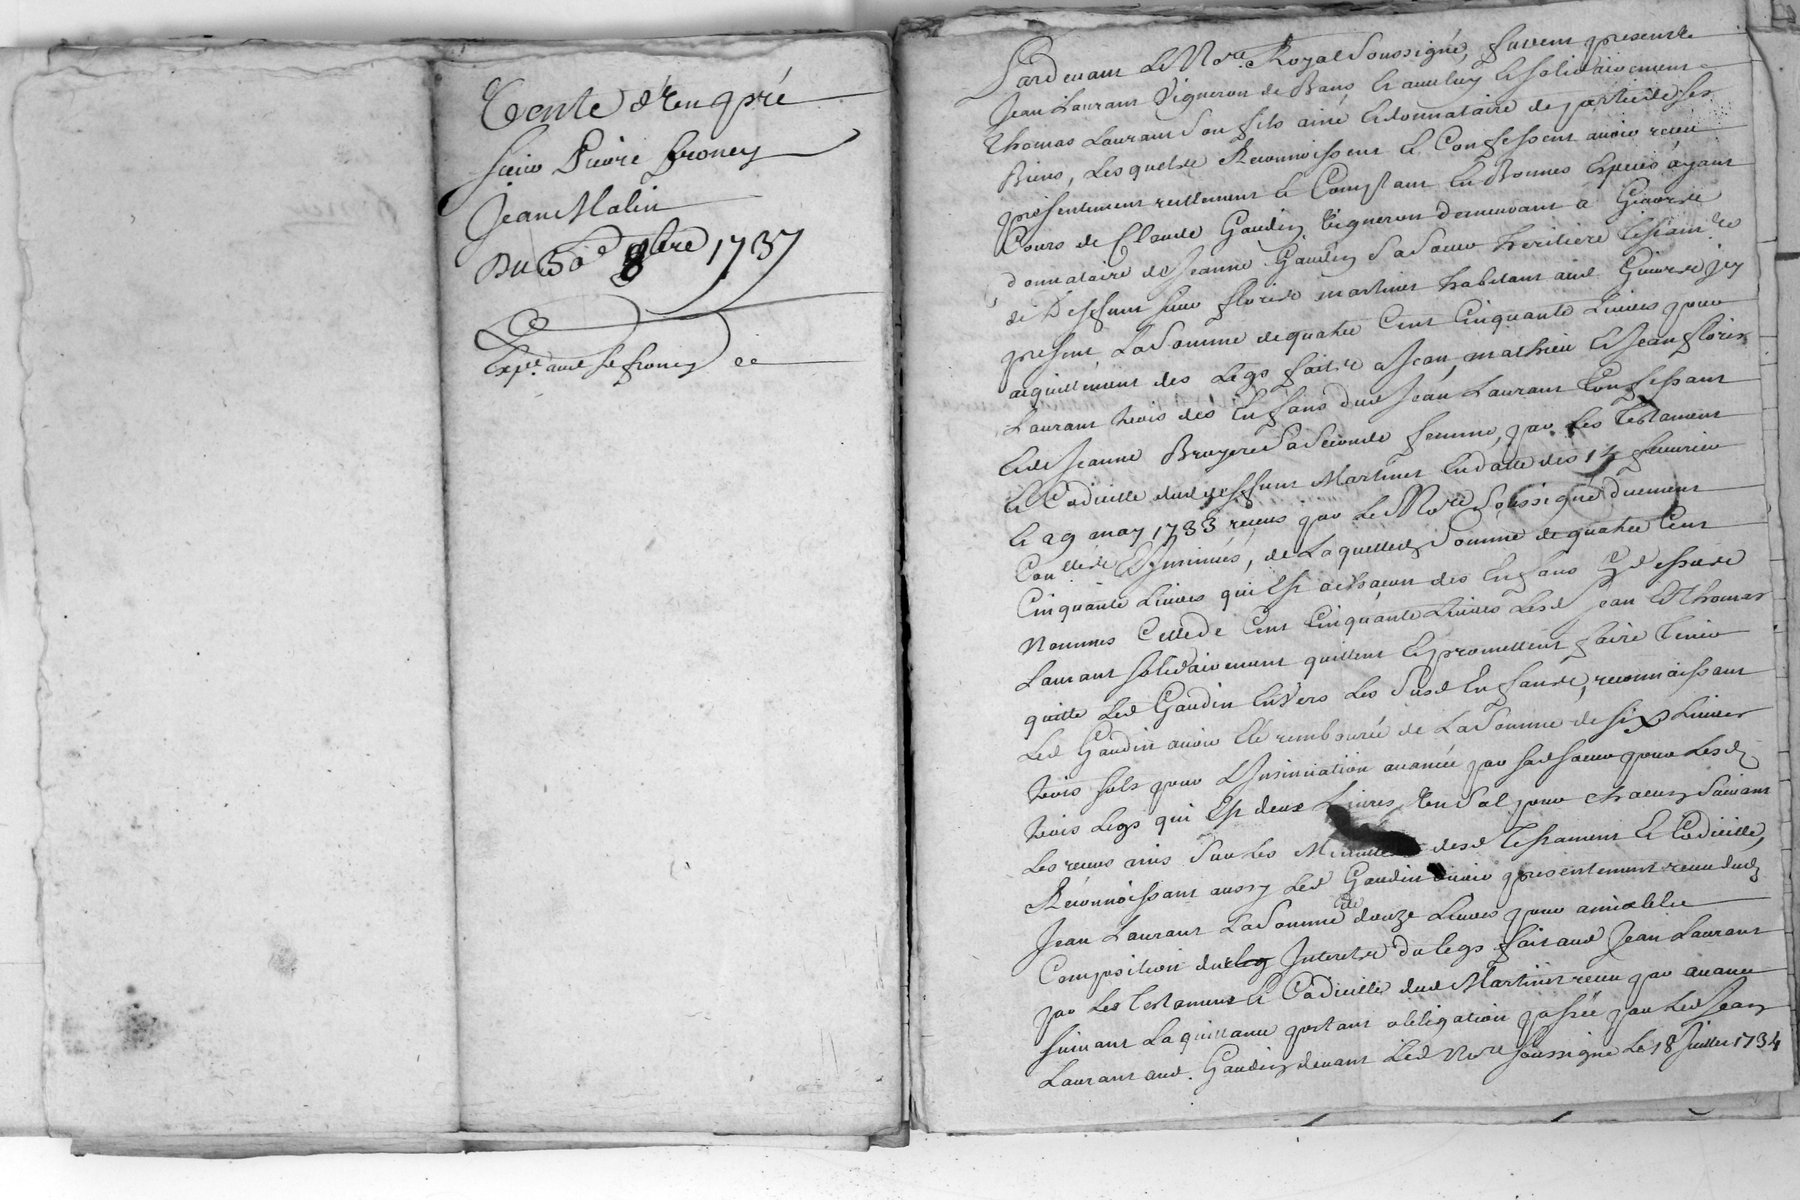 Vente d'un pré
sieur Pierre froney
Jean Malin
Du 30e 8bre 1737
Expé. aud. Sr froney
Pardevant Le Nore. Royal Soussigné, furent presents
Jean Laurant Vigneron de Bans, Et avec luy et solidairement
Thomas Laurant son fils ainé et donnataire de partie de ses
Biens, Lesquels Reconnoissent et Confessent avoir receu
présentement reellement et Comptant En Bonnes Especes ayant
Cours de Claude Gaudin Vigneron demeurant à Givors
donnataire de Jeanne Gaudin sa soeur heritiere testam.re
de Deffunt sieur floris Martinet habitant aud. Givors icy
present, La Somme de quatre Cent Cinquante Livres pour
acquittement des Legs faits a Jean, mathieu et Jean floris
Laurant trois des Enfans dud. Jean Laurant Confessant
et de Jeanne Bruyere sa seconde femme, par Les Testament
et Codicille dud. deffunt Martinet En datte des 14 fevrier
et 29 may 1733 receus par Led. Nore. Soussigné duement
Con.llés et Insinués, de Laquelle Somme de quatre Cent
Cinquante Livres qui Est a chacun des Enfans cy dessus
Nommés Celle de Cent Cinquante Livres Lesd. Jean et Thomas
Laurant solidairement quittent et promettent faire tenir
quitte Led. Gaudin Envers Les Susd. Enfans, reconnoissant
Led. Gaudin avoir Eté remboursé de La Somme de six Livres
trois sols pour L'Insinuation avancée par sad. soeur pour Lesd.
trois Legs qui Est deux Livres un sol pour chacun suivant
Les receus mis sur Les Minuttes desd. Testament et Codicille,
Réconnoissant aussy Led. Gaudin avoir presentement receu dud.
Jean Laurant La Somme de douze Livres pour amiable
Composition des Interets du legs fait aud. Jean Laurant
par Les Testament et Codicille dud. Martinet receu par avance
suivant La quittance portant obligation passée par Led. Jean
Laurant aud. Gaudin devant Led. Nore. soussigné Le 18 Juillet 1734